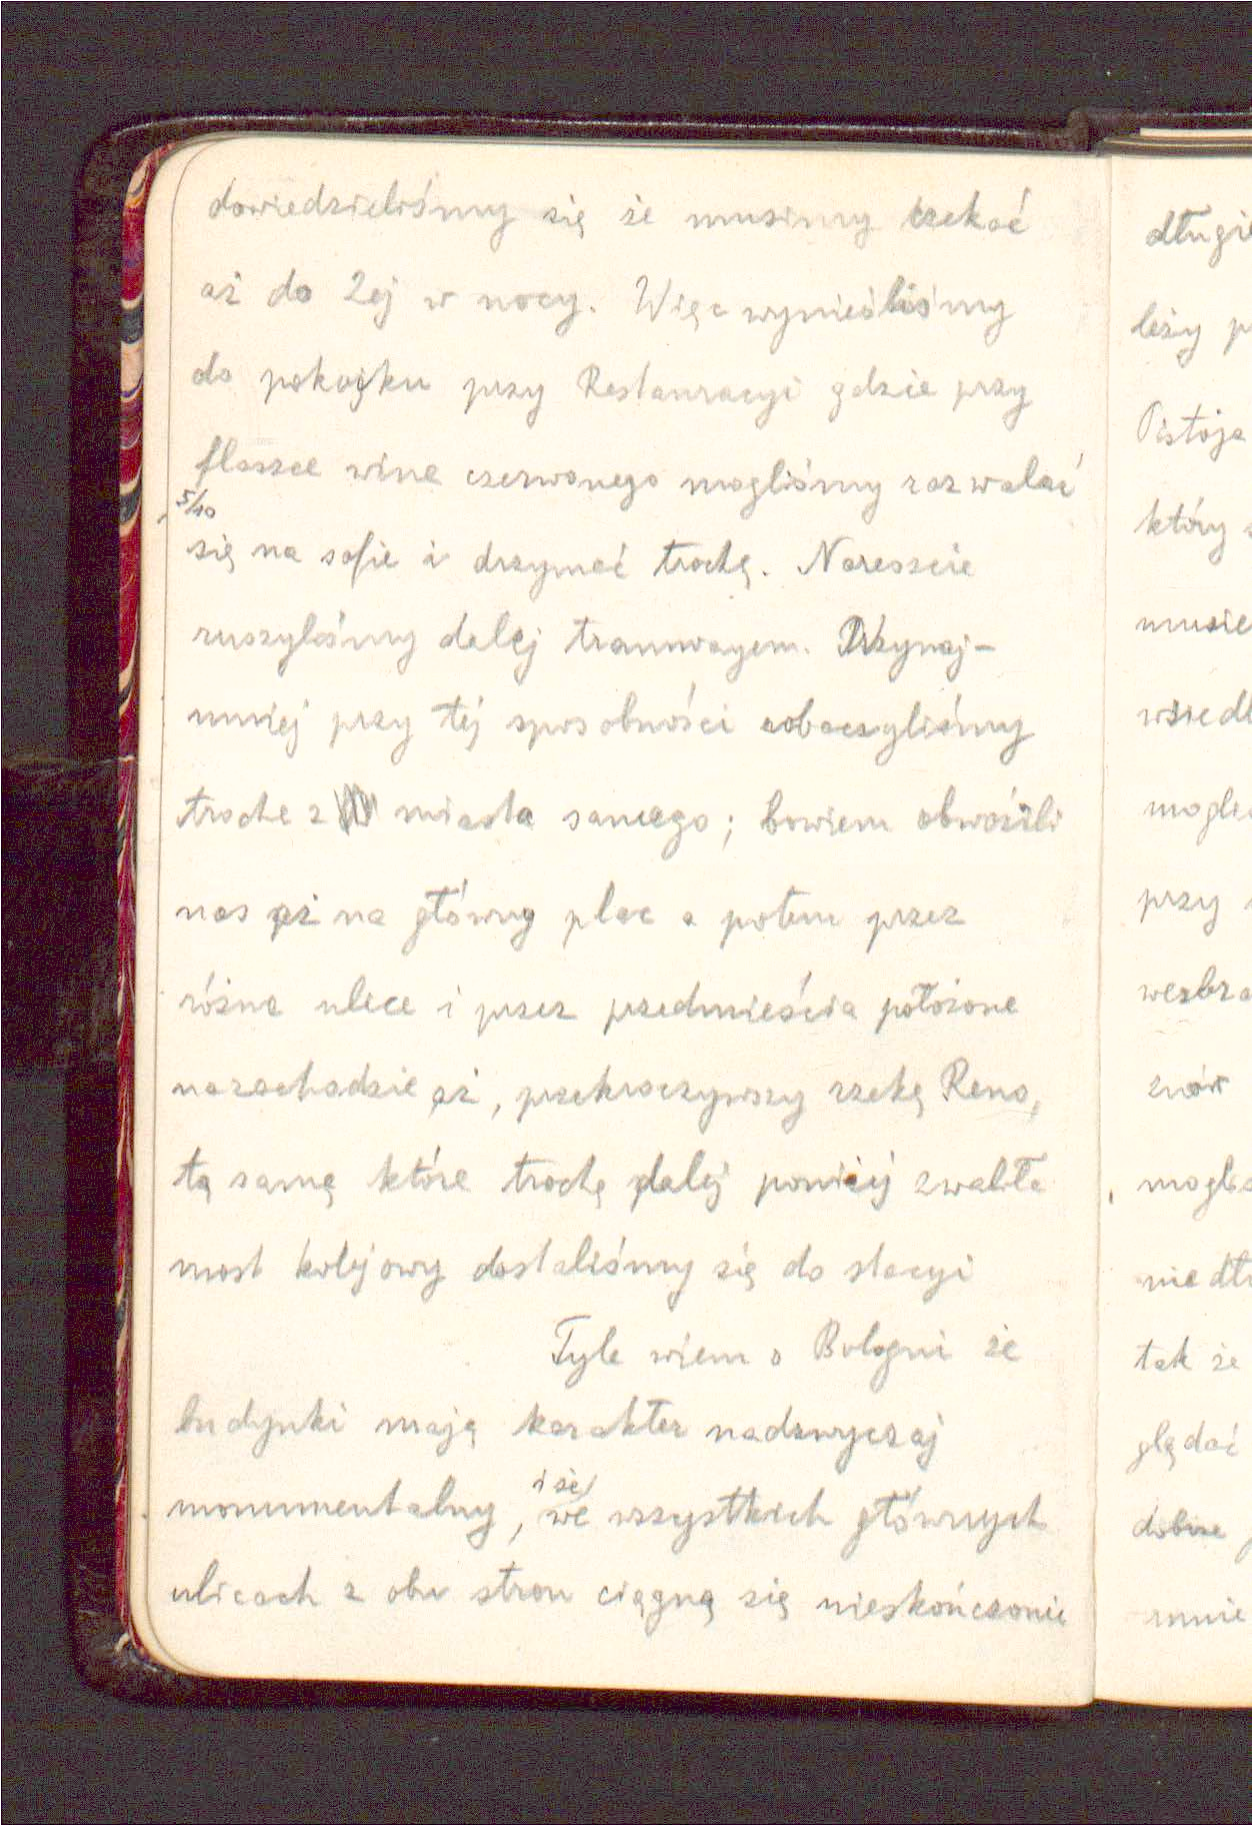 dowiedzieliśmy się że musimy czekać
aż do 2ej w nocy. Więc wynieśliśmy
do pokoiku przy Restauracyi gdzie przy
flaszce wina czerwonego mogliśmy rozwalać
5/10
się na sofie i drzymać trochę. Nareszcie
ruszyliśmy dalej tramwayem. Przynaj-
mniej przy tej sposobności zobaczyliśmy
troche z miasta samego; bowiem obwozili
nas aż na główny plac a potem przez
różne ulice i przez przedmieścia położone
na zachodzie aż, przekroczywszy rzekę Reno,
tą samą która trochę dalej poniżej zwaliła
most kolejowy dostaliśmy się do stacyi
Tyle wiem o Bologni że
budynki mają karakter nadzwyczaj
i że
monumentalny, we wszystkich głównych
ulicach z obu stron ciągną się nieskończenie
długie
leży p
Pistoja
który s
musie
wsiedl
mogli
przy
wezbra
znów
mogli
nie dłu
tak że
glądać
dobrze
mnie